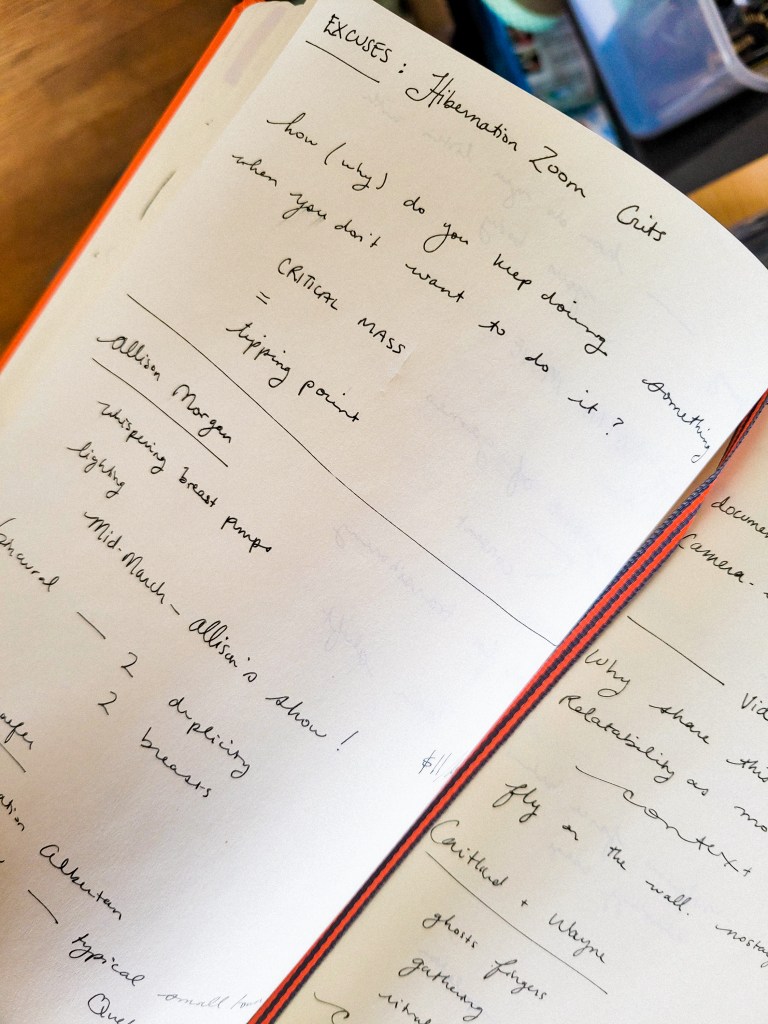 EXCUSES: Hibernation Zoom Crits
how (why) do you keep doing something
when you don't want to do it?
CRITICAL MASS
=
tipping point
Allison Morgan
whispering breast pumps
lighting
Mid-March - Allison's show!
— 2 duplicity
2 breasts
Albertan
— typical small
$11,
Camera.
Why share this
Relatability as
context
fly on the wall.
+ Wayne
ghosts fingers
gathering